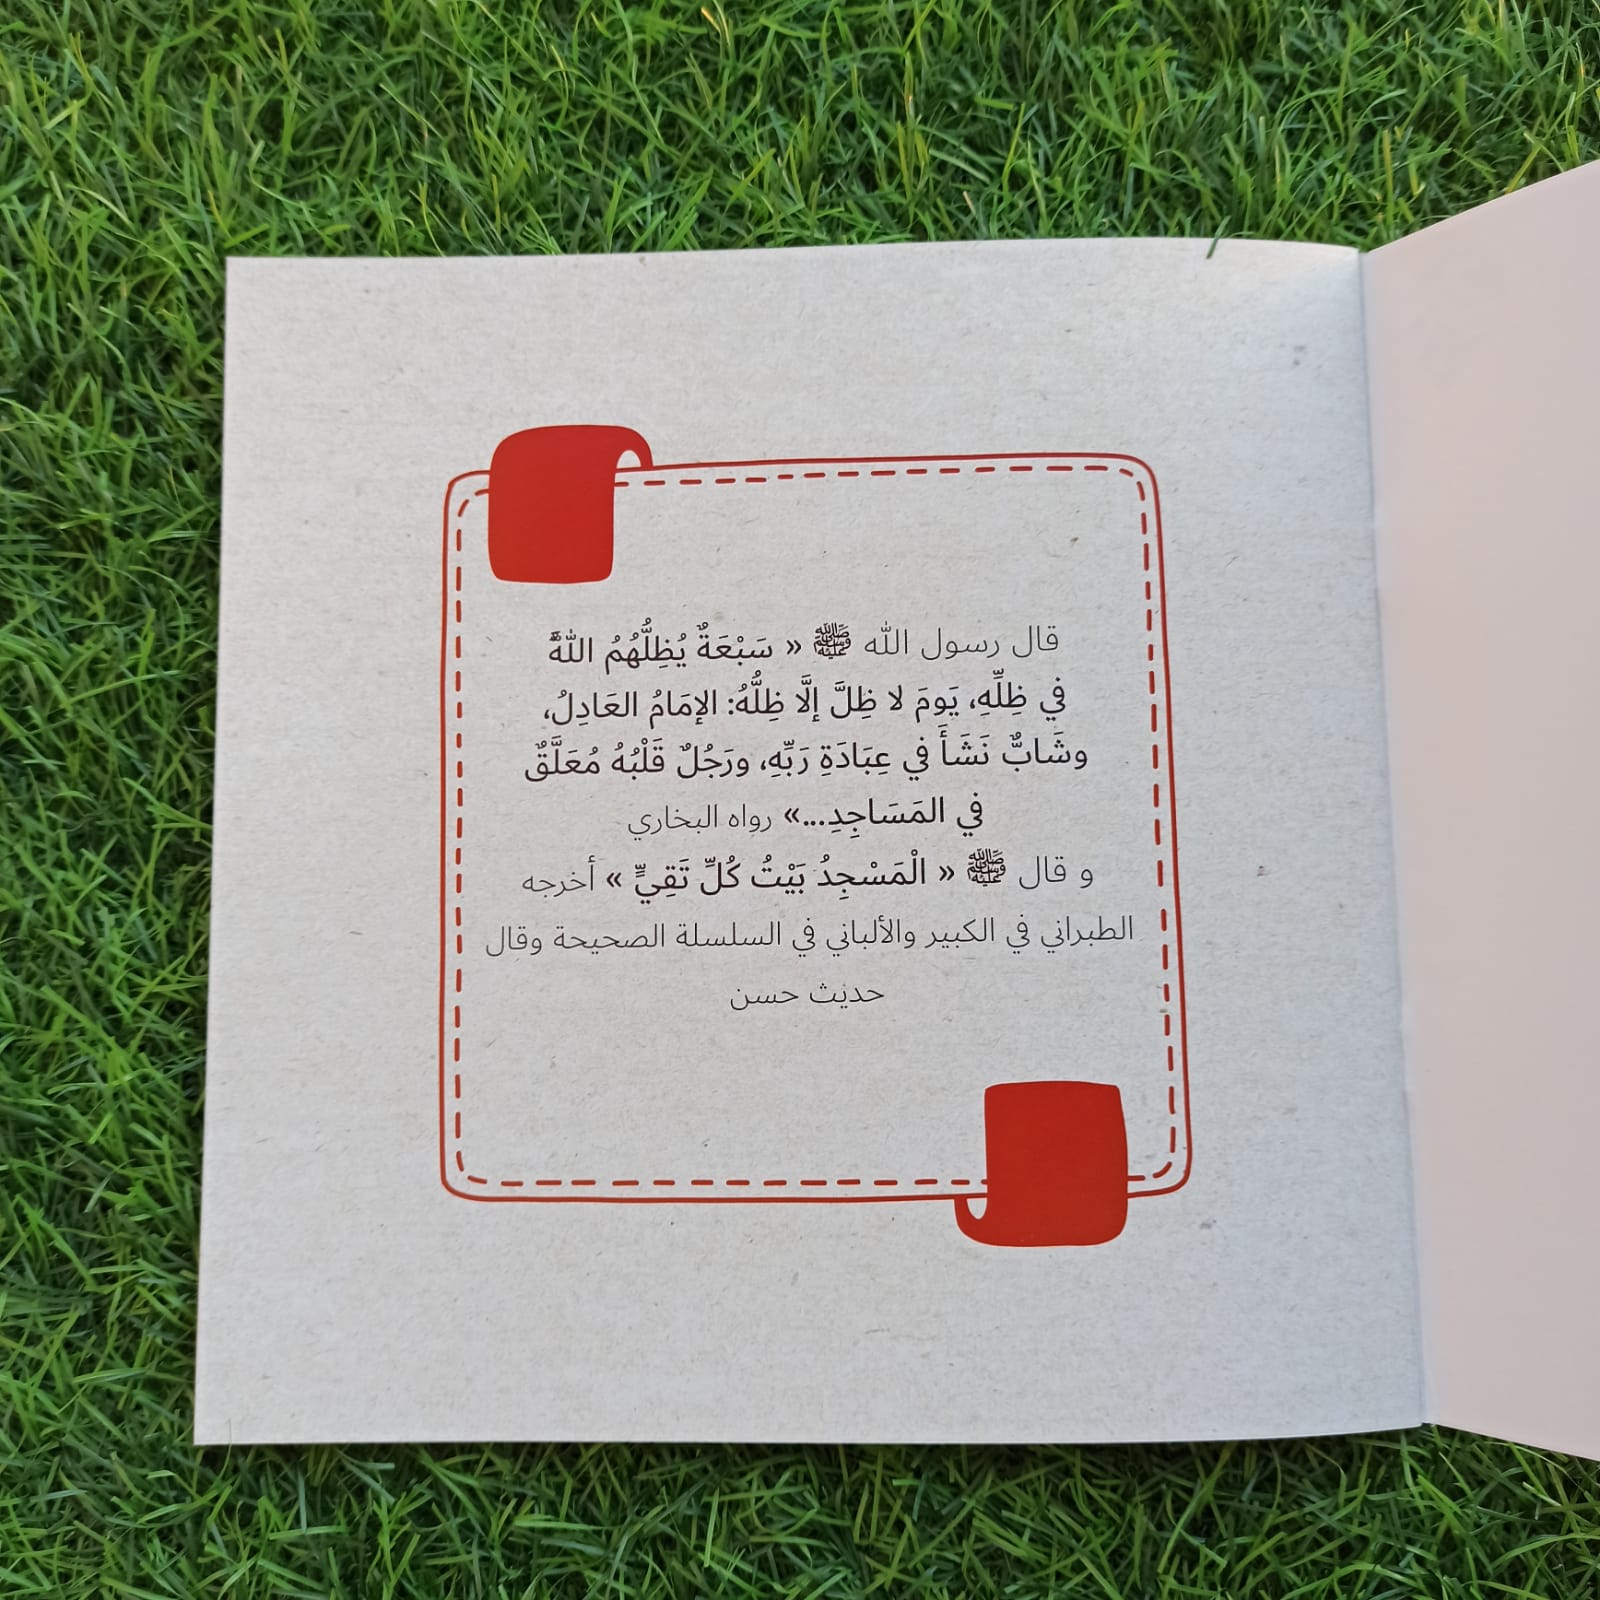 قال رسول الله ﷺ « سَبْعَةٌ يُظِلُّهُمُ اللهُ
في ظِلِّهِ، يَومَ لا ظِلَّ إلَّا ظِلُّهُ: الإمَامُ العَادِلُ،
وشَابٌّ نَشَأَ في عِبَادَةِ رَبِّهِ، ورَجُلٌ قَلْبُهُ مُعَلَّقٌ
في المَسَاجِدِ...» رواه البخاري
و قال ﷺ « الْمَسْجِدُ بَيْتُ كُلِّ تَقِيٍّ » أخرجه
الطبراني في الكبير والألباني في السلسلة الصحيحة وقال
حديث حسن